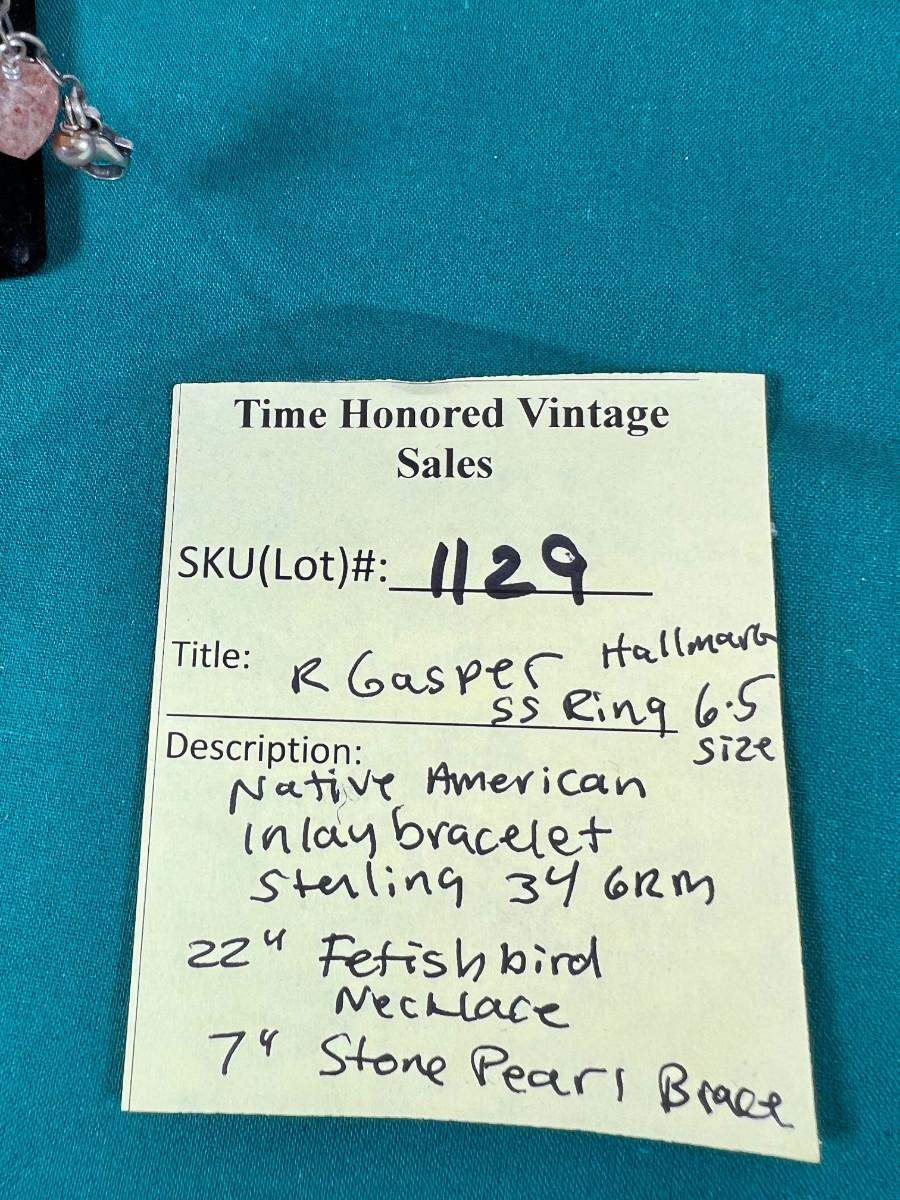 Time Honored Vintage
Sales
SKU(Lot)#: 1129
Title: R Gasper Hallmark
SS Ring 6.5
Size
Description:
Native American
inlay bracelet
Sterling 34 GRM
22" Fetish bird
Necklace
7" Stone Pearl